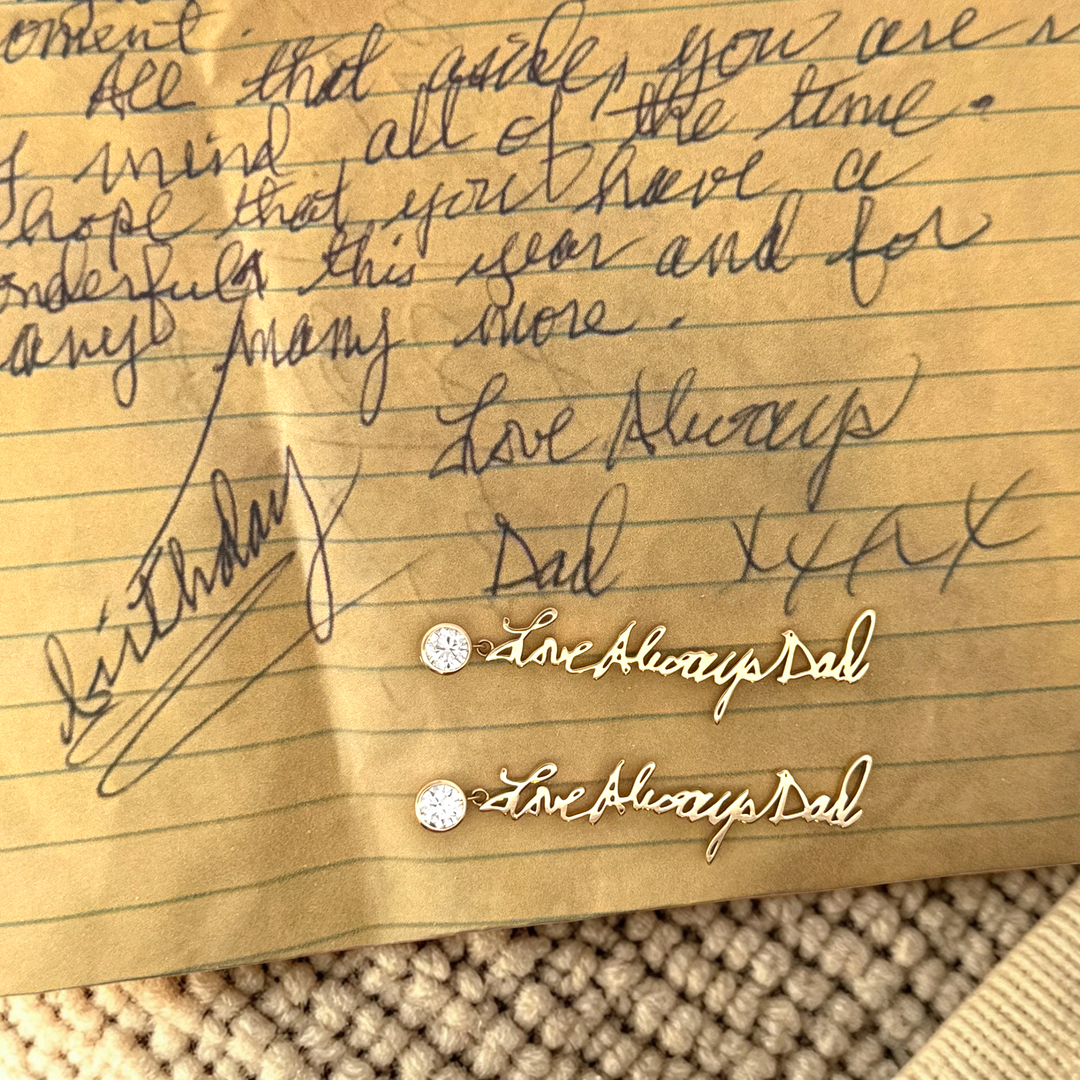 oment.
All that aside, you are
mind, all of the time.
hope that you have a
onderful this year and for
any many more.
birthday
Love Always
Dad XXXX
Love Always Dad
Love Always Dad